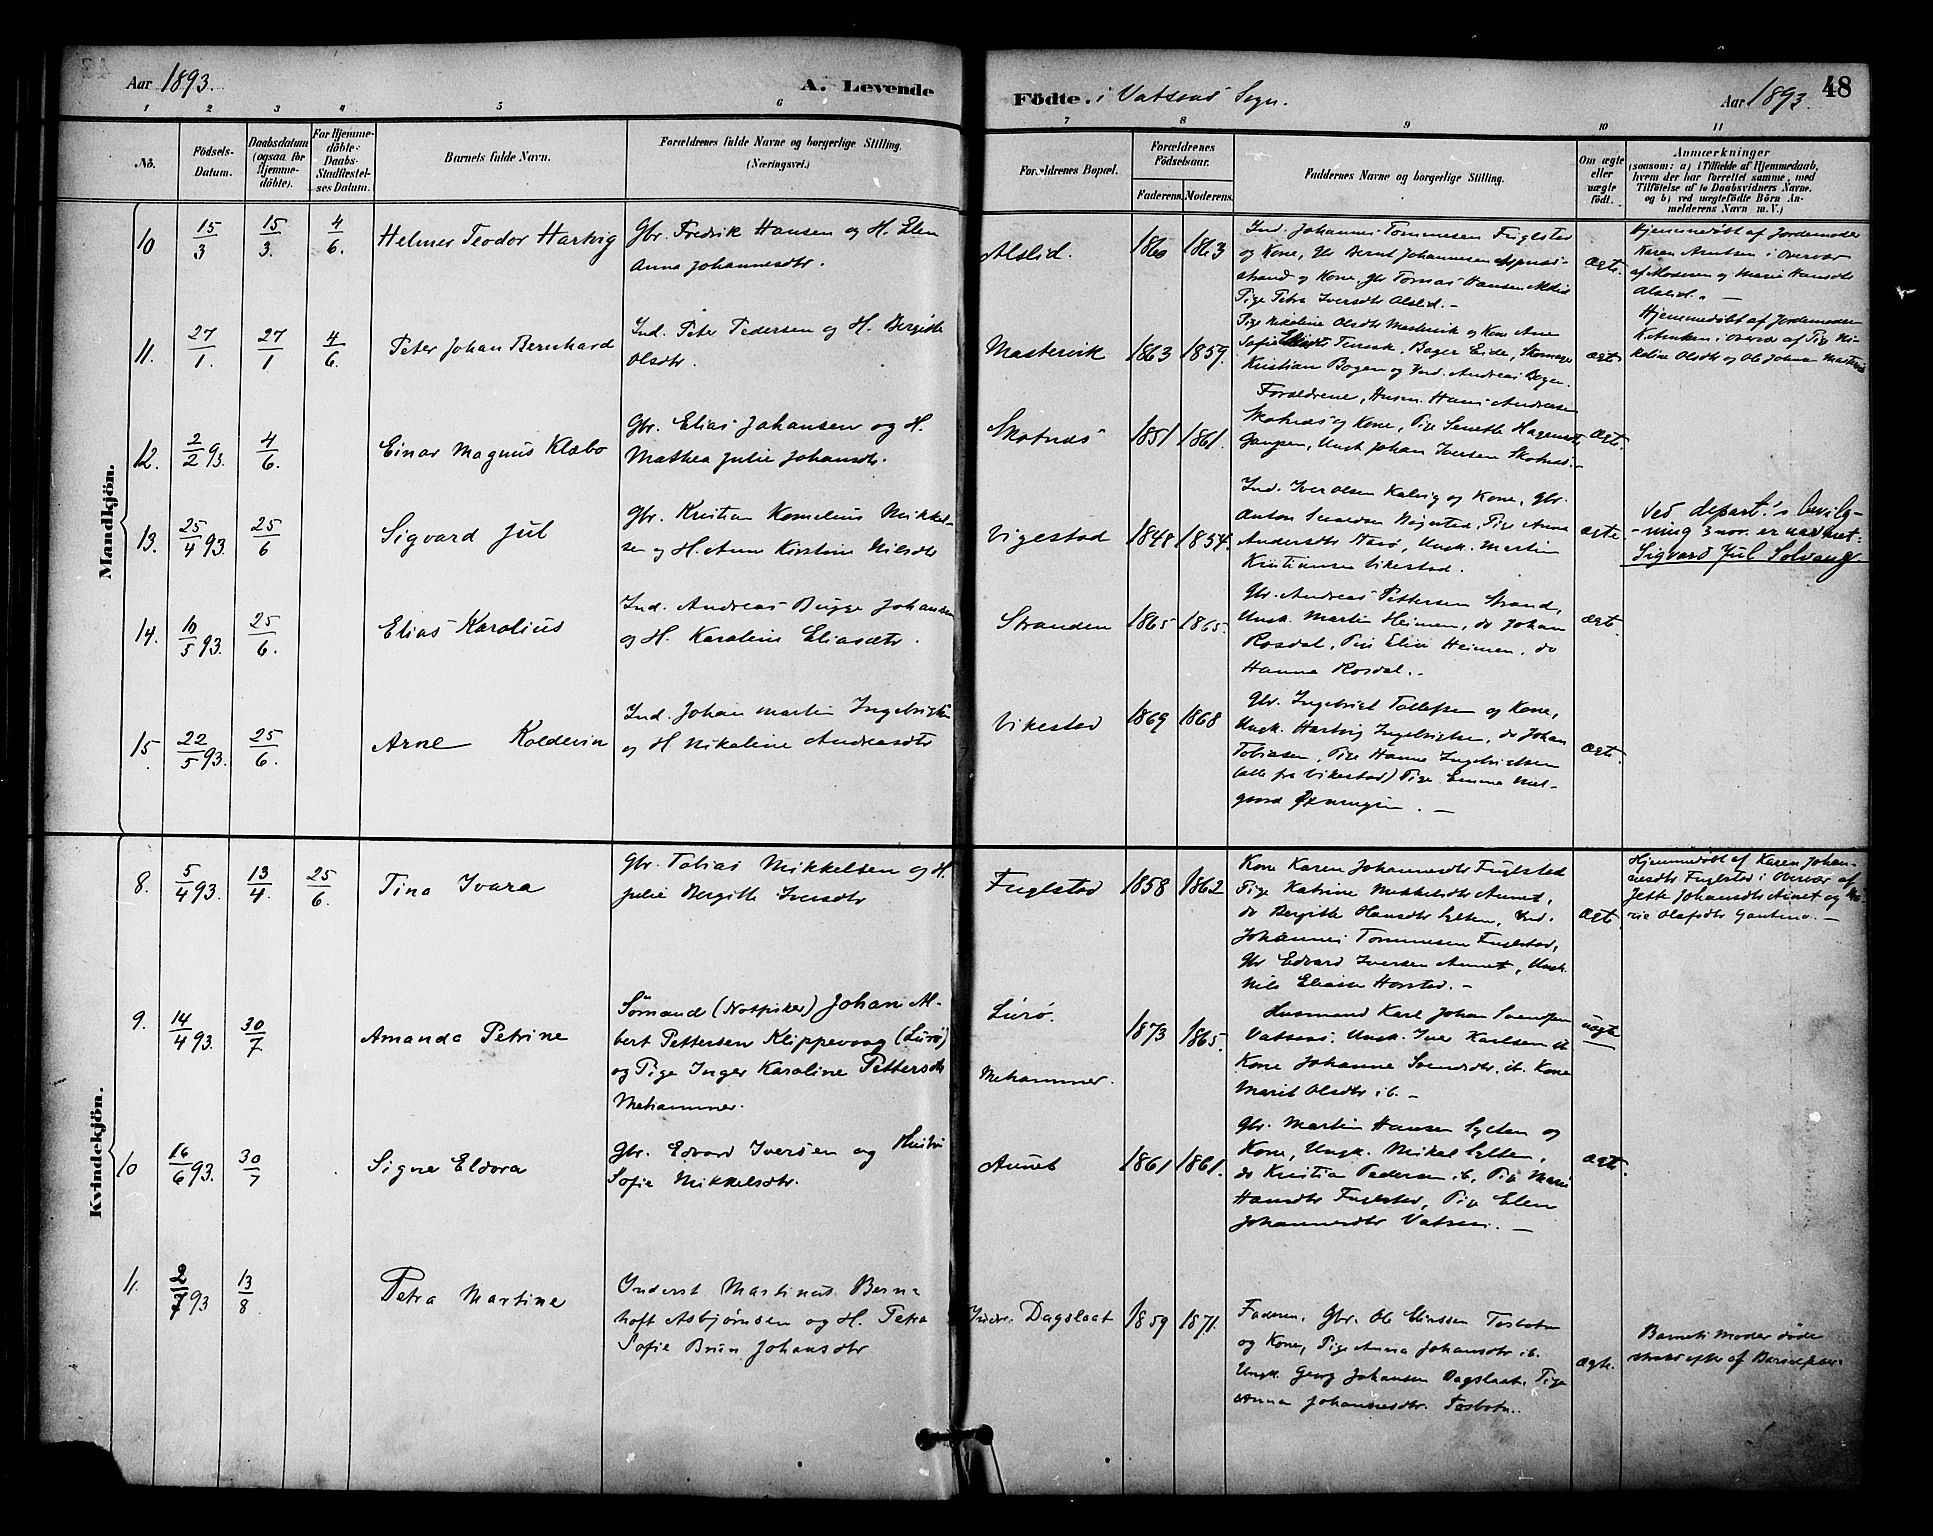 Aar 1893.
A. Levende
Födte. i Vatsens Sogn.
Aar 1893.
48
1 2 3 4 5 6 7 8 9 10 11
No.
Födsels-
Datum.
Daabsdatum
(ogsaa for
Hjemme-
döbte).
For Hjemme-
döbte:
Daabs-
Stadfæstel-
ses Datum.
Barnets fulde Navn.
Forældrenes fulde Navne og borgerlige Stilling.
(Næringsvei.)
Forældrenes Bopæl.
Forældrenes
Födselsaar.
Faderens. Moderens.
Faddernes Navne og borgerlige Stilling.
Om ægte
eller
uægte
födt.
Anmærkninger
(saasom: a) i Tilfælde af Hjemmedaab,
hvem der har forrettet samme, med
Tilföielse af to Daabsvidners Navne.
og b) ved uægtefödte Börn An-
melderens Navn m. V.)
Mandkjön.
10 15/3 15/3. 4/6. Helmer Teodor Hartvig
Gbr. Fredrik Hansen og H. Elen
Anna Johannesdtr.
Alslid. 1860 1863
Ind. Johannes Tommesen Fuglstad
og Kone, Gbr Bernt Johannesen
strand og Kone, Gbr Tomas Hansen Alslid
Pige Petra Iversdtr Alslid. -
ægte.
Hjemmedöbt af Jordemoder
Karen Arntsen i Overvær
af Moderen og Marie Hansdtr
Alslid. -
11. 27/1 27/1 4/6 Peter Johan Bernhard
Ind. Peter Pedersen og H. Bergitte
Olsdtr.
Mastervik 1863 1859.
Pige Nikoline Olsdtr Mastervik og Kone Ane
Sofie Terask, Bager Eide, Skomager
Kristian Bogen og Ind. Andreas Bogen.
ægte
Hjemmedöbt af Jordemoder
i Overvær af Pige Ni-
koline Olsdtr og Ole Johan Mastervik
12. 2/2 93. 4/6. Einar Magnus Klæbo
Gbr. Elias Johansen og H.
Mathea Julie Johansdtr.
Skotnæs 1851 1861.
Forældrene, Husm. Hans Andreasen
Skotnæs og Kone, Pige Hagensdtr
Ungk Johan Iversen Skotnæs. -
ægte.
13. 25/4 93. 25/6 Sigvard Jul
Gbr. Kristian Kornelius Mikkel-
sen og H. Ane Kirstine Nilsdtr
Vigestad 1848 1854.
Ind. Iver Olsen Kalvig og Kone, Gbr.
Anton Vigestad, Pige Anne
Andersdtr Ungk. Martin
Kristiansen Vikestad.
ægte
Ved depart.'s bevilg-
-ning 3 nov. er navnet:
Sigvard Jul Solvang.
14. 10/5 93. 25/6. Elias Karolius
Ind. Andreas Bugge Johansen
og H. Karoline Eliasdtr.
Stranden 1865 1865.
Gbr. Andreas Pettersen Strand,
Ungk. Martin Heimen, do Johan
Rosdal, Pige Eline Heimen, do
Hanna Rosdal..
ægte.
15 22/5 93. 25/6. Arne Kolderin
Ind. Johan Martin Ingebrigtsen
og H Nikoline Andreasdtr
Vikestad 1869 1868
Gbr. Ingebrigt Tollefsen og Kone,
Ungk. Hartvig Ingebrigtsen, do Johan
Tobiasen, Pige Hanna Ingebrigtsen
(alle fra Vikestad) Pige Emma
ægte.
Kvindekjön.
8. 5/4 93. 13/4. 25/6. Tina Ivara
Gbr. Tobias Mikkelsen og H.
Julie Bergitte Iversdtr
Fuglstad 1858 1862
Kone Karen Johannesdtr Fuglstad
Pige Katrine Mikkelsdtr Aunet,
do Bergitte Hansdtr Sylten, Ind.
Johannes Tommesen Fuglstad,
Gbr Edvard Iversen Aunet, Ungk.
Nils Eliasen Horstad. -
ægte.
Hjemmedöbt af Karen Johan-
nesdtr Fuglstad i Overvær af
Jette Johansdtr Aunet og Ma-
rie Olafsdtr -
9. 14/4 93. 30/7 Amanda Petrine
Sømand (Notfisker) Johan Al-
bert Pettersen Klippevaag (Lurø)
og Pige Inger Karoline Pettersdtr
Mehammer.
Lurø.
Mehammer.
1873 1865.
Husmand Karl Johan Svendsen
Vatsens. Ungk. Iver Karlsen ib.
Kone Johanne Svendsdtr. ib. Kone
Marit Olsdtr ib. -
uægte
10 16/6 93. 30/7 Signe Eldora
Gbr. Edvard Iversen og Hustru
Sofie Mikkelsdtr.
Aunet 1861 1861.
Gbr. Martin Hansen Sylten og
Kone, Ungk. Mikal Sylten,
do Kristian Pedersen ib, Pige Marie
Hansdtr Fuglstad, Pige Elen
Johannesdtr Vatsen. -
ægte.
11. 2/7 93 13/8. Petra Martine
Inderst Martinus Bern-
hoft Asbjørnsen og H. Petra
Sofie Brun Johansdtr
Indre. Dagslaat 1859 1871.
Faderen, Gbr. Ole Eliassen Tosbotn
og Kone, Pige Anna Johansdtr ib.
Ungk. Georg Johansen Dagslaat. Pige
Anna Johannesdtr. Tosbotn..
ægte.
Barnets Moder døde
straks efter af Barselfeber